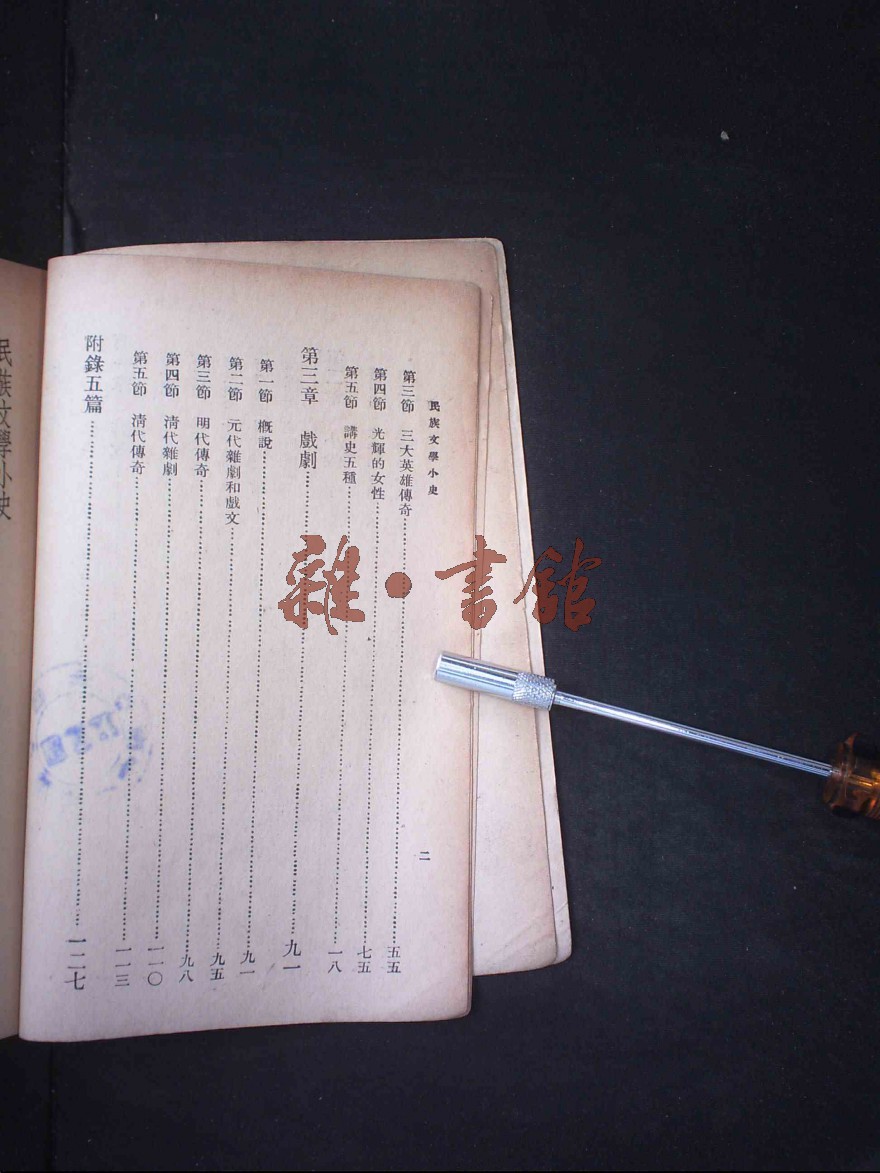 民族文學小史
二
第三節 三大英雄傳奇………五五
第四節 光輝的女性………七五
第五節 講史五種………一八
第三章 戲劇………九一
第一節 概說………九一
第二節 元代雜劇和戲文………九五
第三節 明代傳奇………九八
第四節 清代雜劇………一一〇
第五節 清代傳奇………一一三
附錄五篇………一二七
民族文學小史
雜·書館